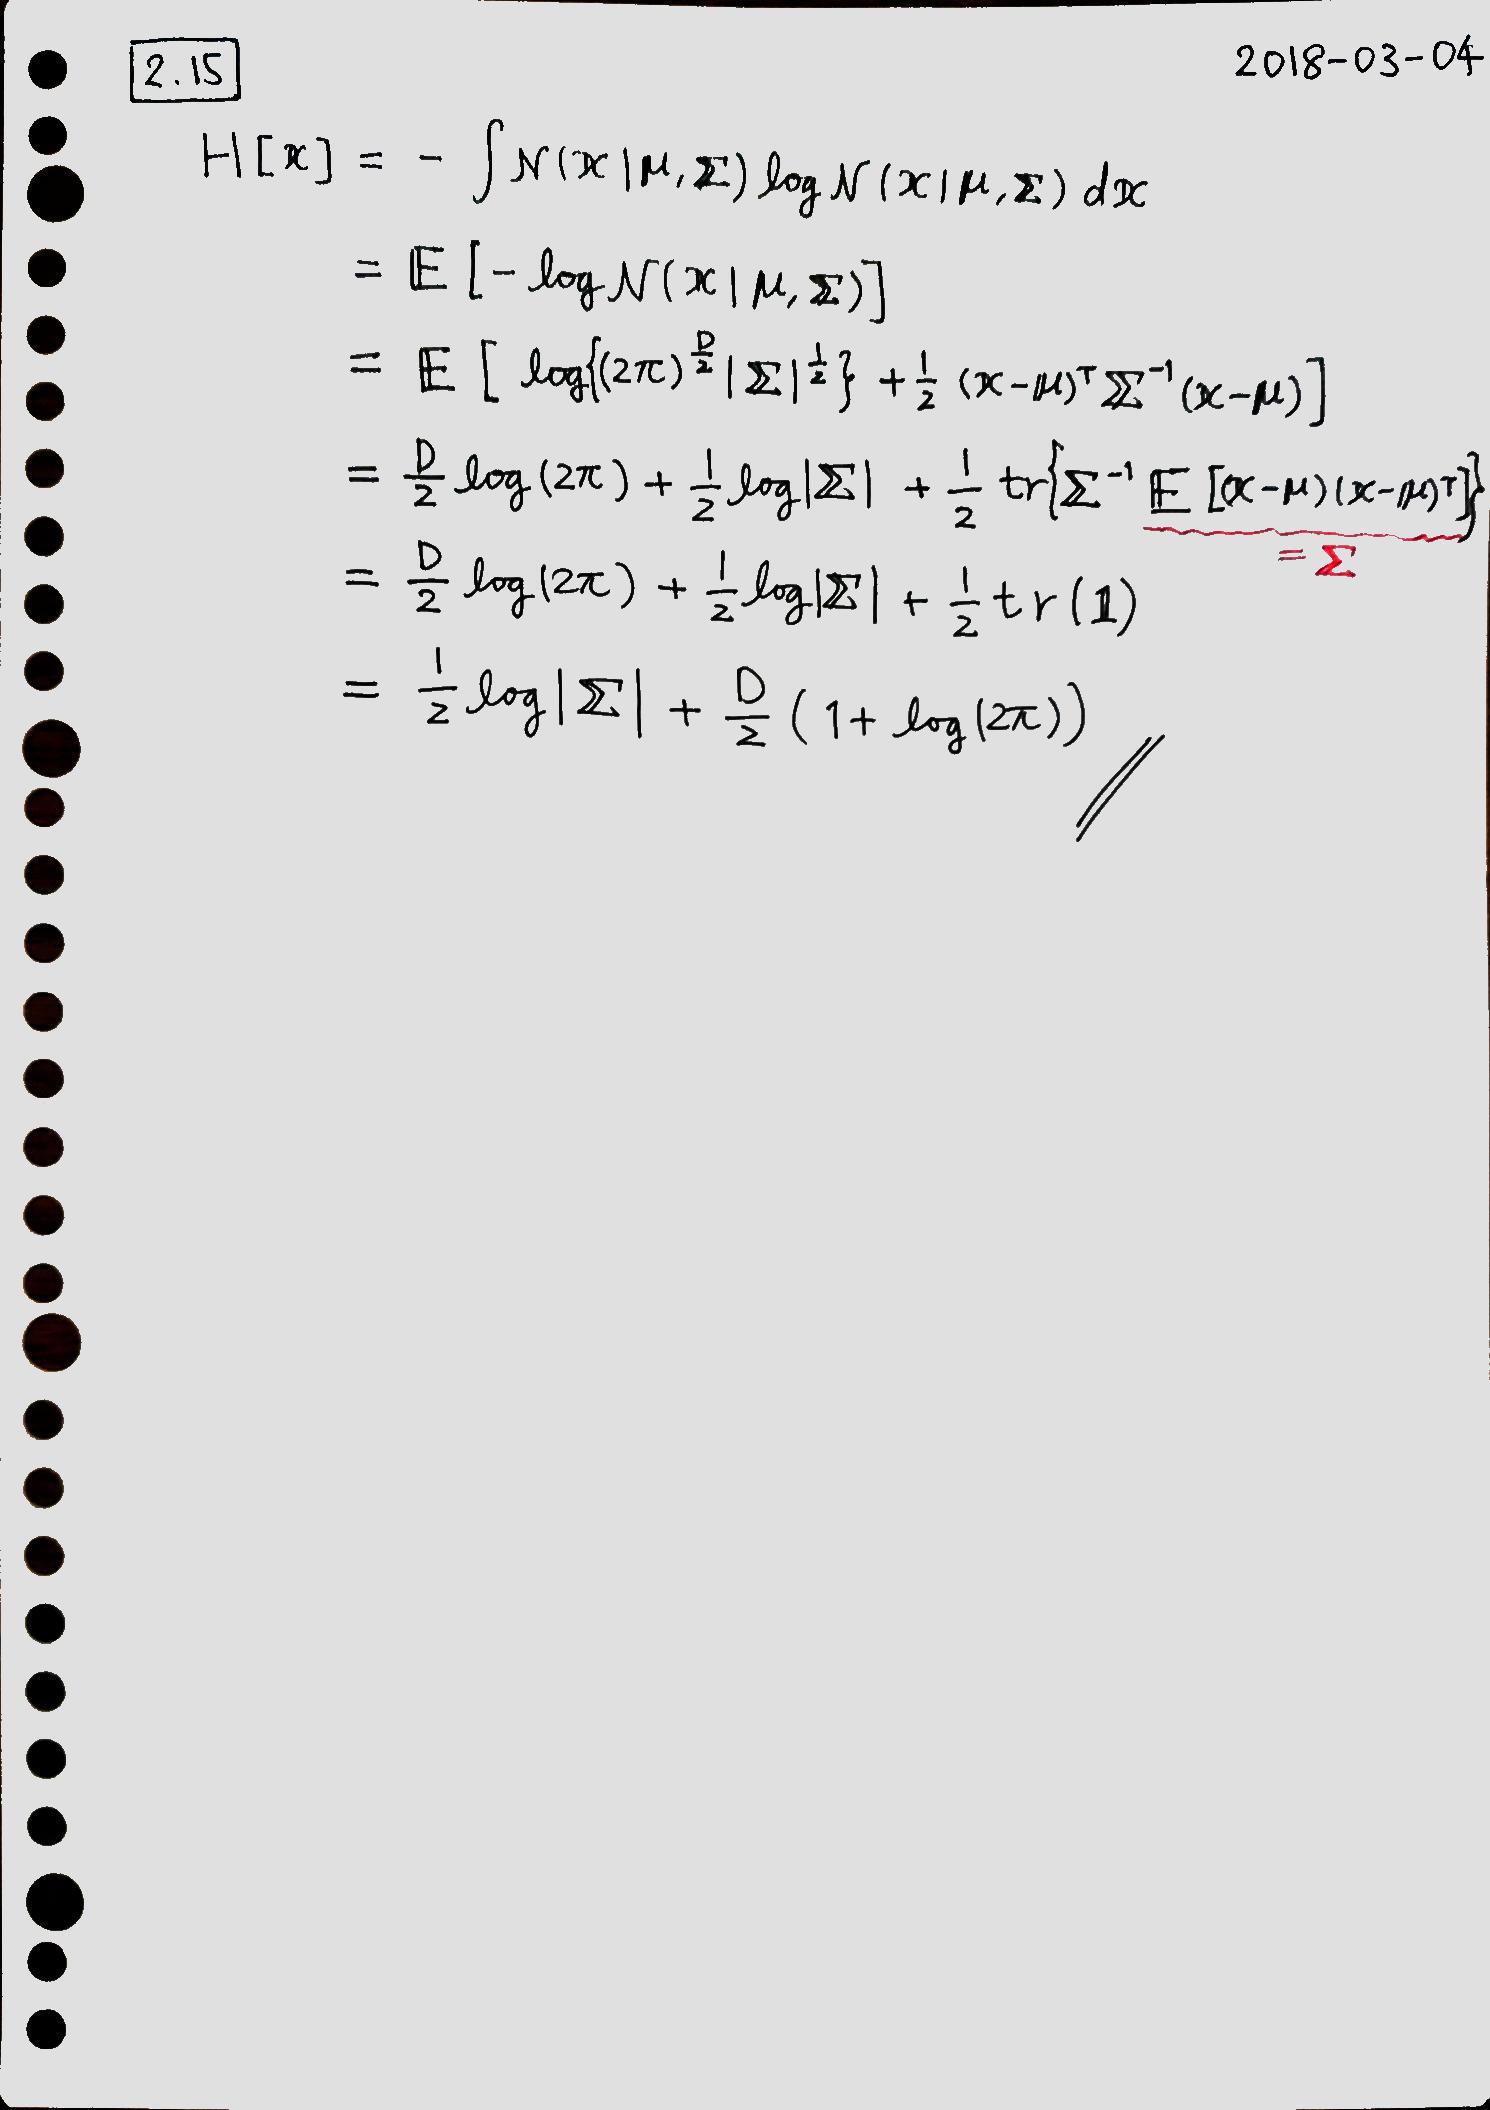 2.15 2018-03-04
H[x] = - ∫ N(x|μ,Σ) log N(x|μ,Σ) dx
= 𝔼 [- log N(x|μ,Σ)]
= 𝔼 [ log{(2π)^{D/2} |Σ|^{1/2}} + 1/2 (x-μ)ᵀ Σ⁻¹ (x-μ)]
= D/2 log(2π) + 1/2 log|Σ| + 1/2 tr{Σ⁻¹ 𝔼 [(x-μ)(x-μ)ᵀ]}
= Σ
= D/2 log(2π) + 1/2 log|Σ| + 1/2 tr(𝟙)
= 1/2 log|Σ| + D/2 (1 + log(2π))